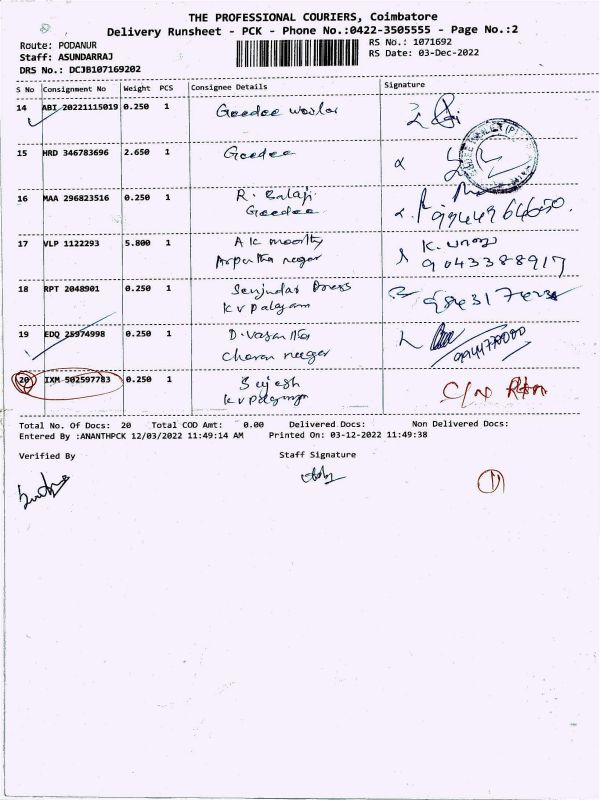 THE PROFESSIONAL COURIERS, Coimbatore
Delivery Runsheet - PCK - Phone No.:0422-3505555 - Page No.:2
Route: PODANUR
RS No.: 1071692
Staff: ASUNDARRAJ
RS Date: 03-Dec-2022
DRS No.: DCJB107169202
S No Consignment No Weight PCS Consignee Details Signature
14 ABI 20221115019 0.250 1 Geedee
15 HRD 346783696 2.650 1 Geedee
16 MAA 296823516 0.250 1 R. Balaji
Geedee
17 VLP 1122293 5.800 1 A K moorthy
nagar 9043388917
18 RPT 2048901 0.250 1
K V palayam
19 EDQ 25974998 0.250 1 D. Vasantha
Charan nagar
20 IXM 502597783 0.250 1 Sujesh
K V palayam
Total No. Of Docs: 20 Total COD Amt: 0.00 Delivered Docs: Non Delivered Docs:
Entered By :ANANTHPCK 12/03/2022 11:49:14 AM Printed On: 03-12-2022 11:49:38
Verified By Staff Signature
1